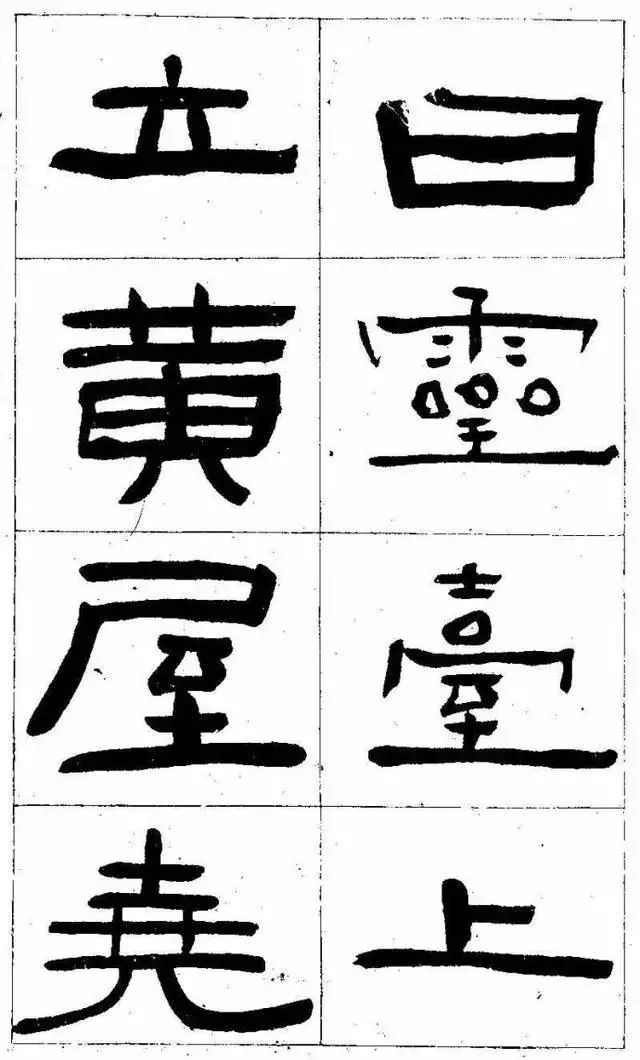 曰靈臺上
立黃屋堯